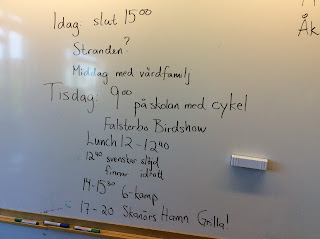 Idag: slut 15⁰⁰
Stranden?
Middag med värdfamilj
Tisdag: 9⁰⁰ på skolan med cykel
Falsterbo Birdshow
Lunch 12-12⁴⁰
12⁴⁰ svenskar slöjd
finnar idrott
14-15³⁰ 6-kamp
17-20 Skanörs Hamn Grilla!
Åk